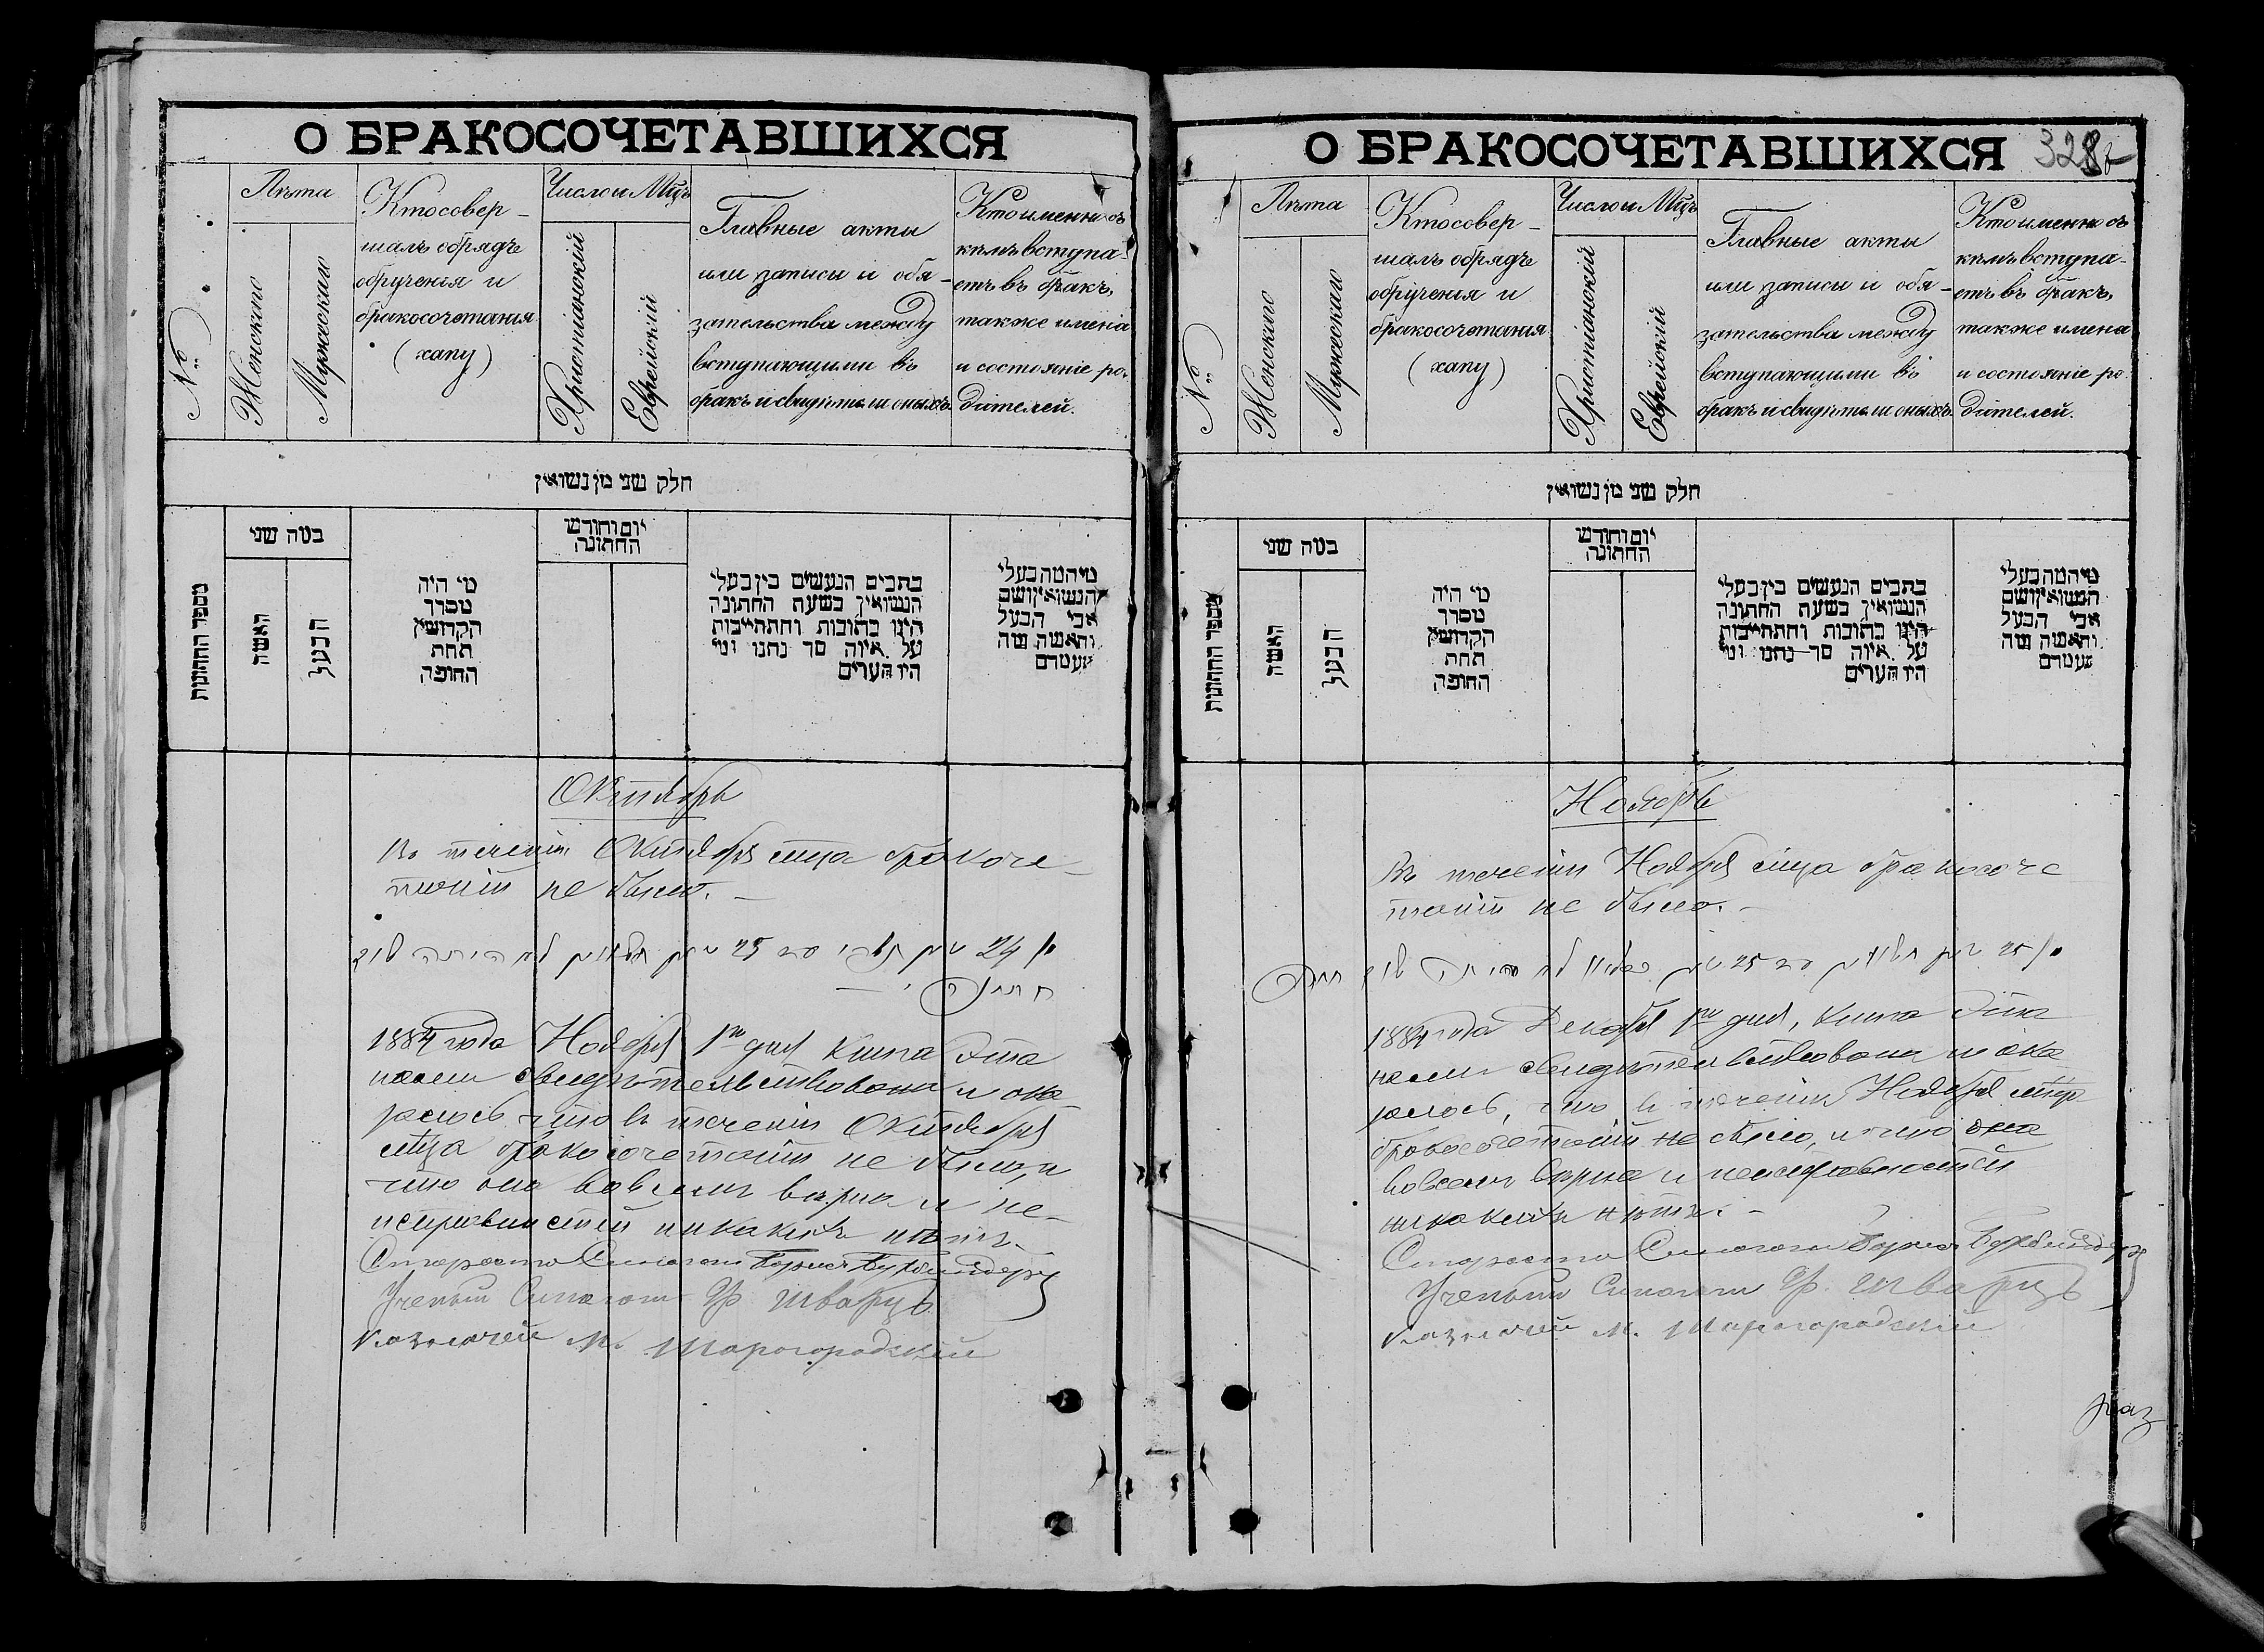 О БРАКОСОЧЕТАВШИХСЯ
№
Лѣта
Женскаго
Мужескаго
Кто совер-
шалъ обрядъ
обрученія и
бракосочетанія
(хапу)
Число и Мцъ
Христіанскій
Еврейскій
Главные акты
или записи и обя-
зательства между
вступающими въ
бракъ и свидѣтели оныхъ.
Кто именно съ
кѣмъ вступа-
етъ въ бракъ,
также имена
и состояніе ро-
дителей.
חלק שני מן נשואין
מספר החתונות
במה שני
האשה
הבעל
מי היה
מסדר
הקדושין
תחת
החופה
יום וחודש
החתונה
כתבים הנעשים בין בעלי
הנשואין בשעת החתונה
היינו כתובות והתחייבות
על איזה סך נתנו ומי
היו העדים
מי המה בעלי
הנשואין ושם
אבי הבעל
והאשה ומה
מעמדם
Октябрь
Въ теченіи Октября мца бракоче-
таній не было. -
24 תשרי עד 25 חשון לא היתה שום
חתונה
1884 года Ноября 1го дня книга эта
нами свидѣтельствована и ока
залось что въ теченіи Октября
мца бракосочетаній не было, и
что она вовсемъ вѣрна и не-
исправностей никакихъ нѣтъ.
Староста Синагоги Борисъ Бухбиндеръ
Ученый Синагоги Ф. Шварцъ
Казначей М. Шарогородскій
О БРАКОСОЧЕТАВШИХСЯ
328
№
Лѣта
Женскаго
Мужескаго
Кто совер-
шалъ обрядъ
обрученія и
бракосочетанія
(хапу)
Число и Мцъ
Христіанскій
Еврейскій
Главные акты
или записи и обя-
зательства между
вступающими въ
бракъ и свидѣтели оныхъ.
Кто именно съ
кѣмъ вступа-
етъ въ бракъ,
также имена
и состояніе ро-
дителей.
חלק שני מן נשואין
מספר החתונות
במה שני
האשה
הבעל
מי היה
מסדר
הקדושין
תחת
החופה
יום וחודש
החתונה
כתבים הנעשים בין בעלי
הנשואין בשעת החתונה
היינו כתובות והתחייבות
על איזה סך נתנו ומי
היו העדים
מי המה בעלי
הנשואין ושם
אבי הבעל
והאשה ומה
מעמדם
Ноябрь
Въ теченіи Ноября мца бракосоче
таній не было. -
25 חשון עד 25 כסלו לא היתה שום חתונה
1884 года Декабря 1го дня, книга эта
нами свидѣтельствована и ока
залось, что въ теченіи Ноября мца
бракосочетаній не было, и что она
вовсемъ вѣрна и неисправностей
никакихъ нѣтъ. -
Староста Синагоги Борисъ Бухбиндеръ
Ученый Синагоги Ф. Шварцъ
Казначей М. Шарогородскій